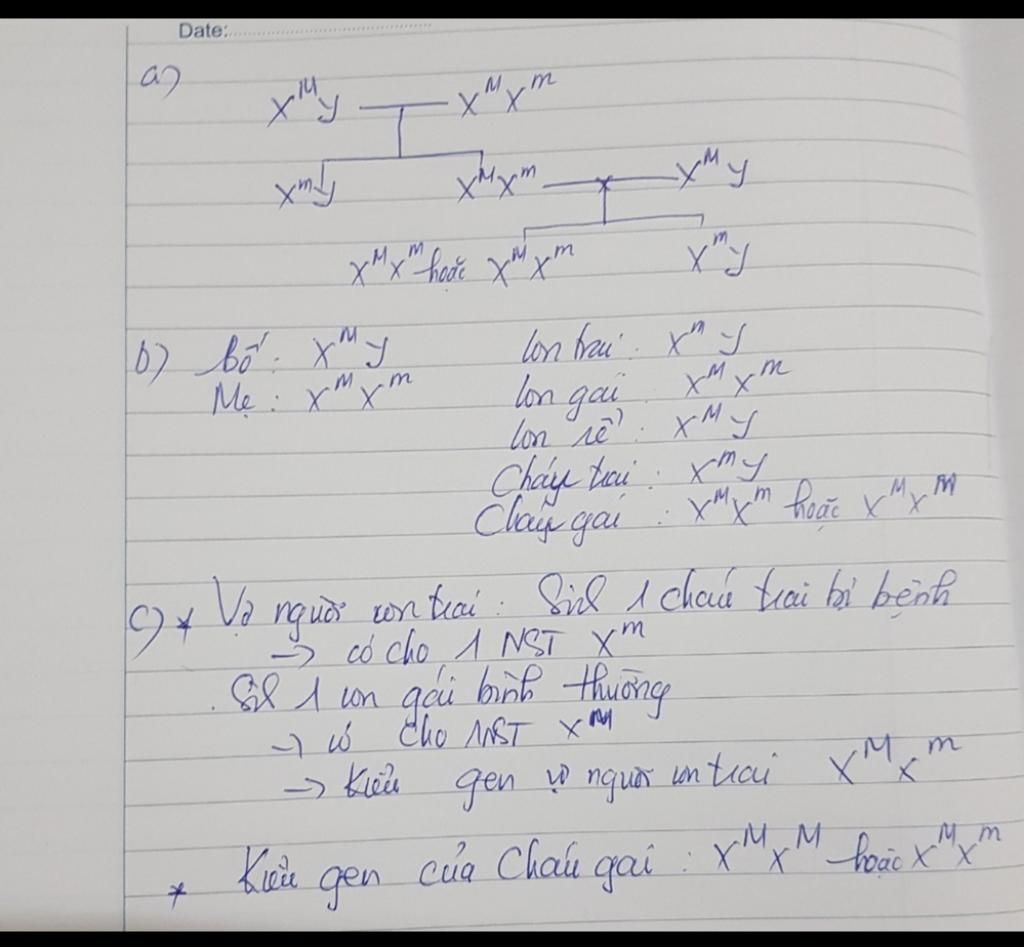 Date:
a)
X^M y — X^M X^m
X^m y X^M X^m — X^M y
X^M X^m hoặc X^M X^m X^m y
b) bố: X^M y Con trai: X^m y
Mẹ: X^M X^m Con gái X^M X^m
Con rể: X^M y
Cháu trai: X^m y
Cháu gái: X^M X^m hoặc X^M X^M
c) * Vợ người con trai: Sinh 1 cháu trai bị bệnh
→ có cho 1 NST X^m
. Sinh 1 con gái bình thường
→ có cho 1 NST X^M
→ Kiểu gen vợ người con trai X^M X^m
* Kiểu gen của Cháu gái: X^M X^M hoặc X^M X^m